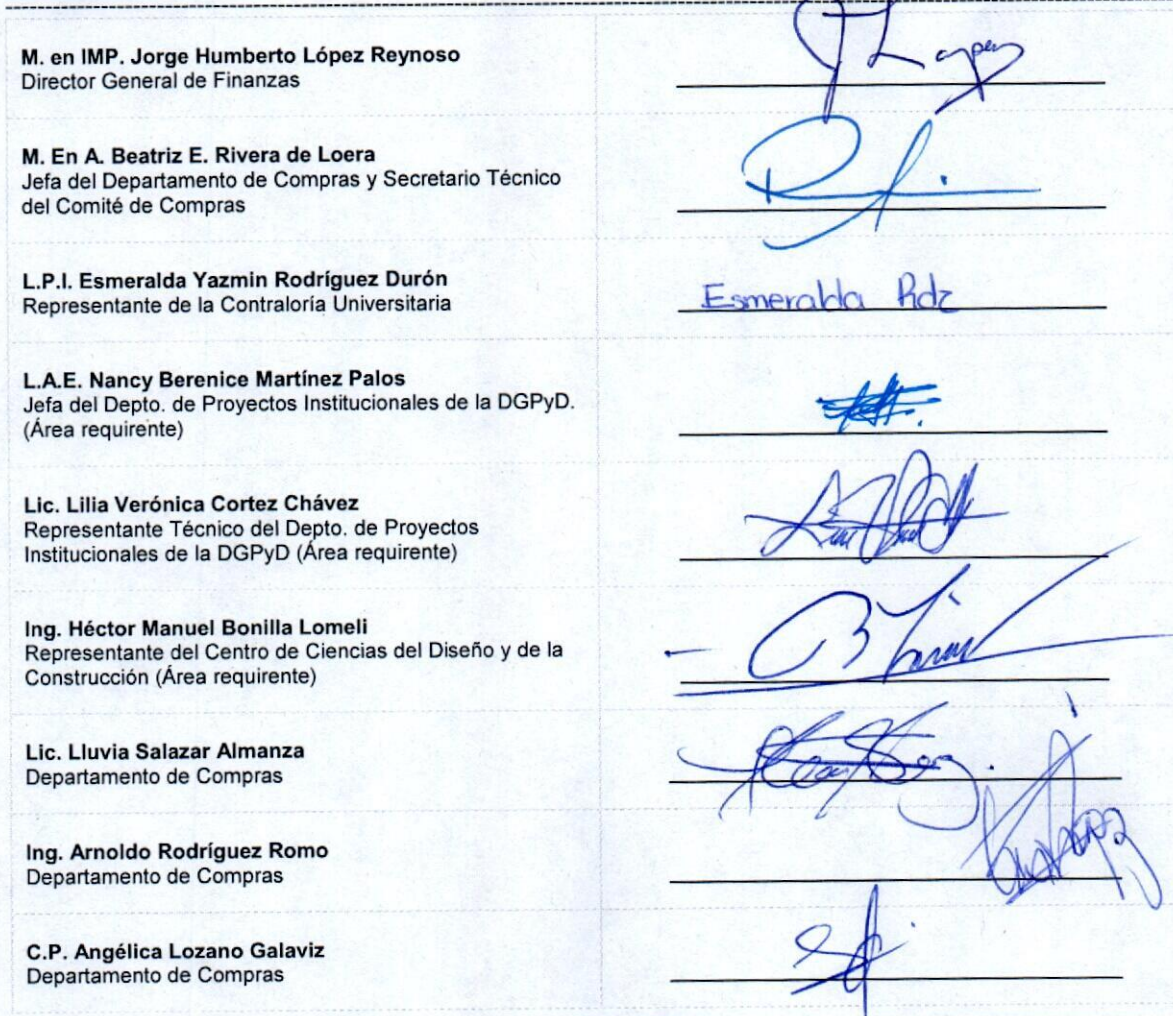 M. en IMP. Jorge Humberto López Reynoso
Director General de Finanzas
J Lopez
M. En A. Beatriz E. Rivera de Loera
Jefa del Departamento de Compras y Secretario Técnico
del Comité de Compras
L.P.I. Esmeralda Yazmin Rodríguez Durón
Representante de la Contraloría Universitaria
Esmeralda Rdz
L.A.E. Nancy Berenice Martínez Palos
Jefa del Depto. de Proyectos Institucionales de la DGPyD.
(Área requirente)
Lic. Lilia Verónica Cortez Chávez
Representante Técnico del Depto. de Proyectos
Institucionales de la DGPyD (Área requirente)
Ing. Héctor Manuel Bonilla Lomeli
Representante del Centro de Ciencias del Diseño y de la
Construcción (Área requirente)
Lic. Lluvia Salazar Almanza
Departamento de Compras
Ing. Arnoldo Rodríguez Romo
Departamento de Compras
C.P. Angélica Lozano Galaviz
Departamento de Compras